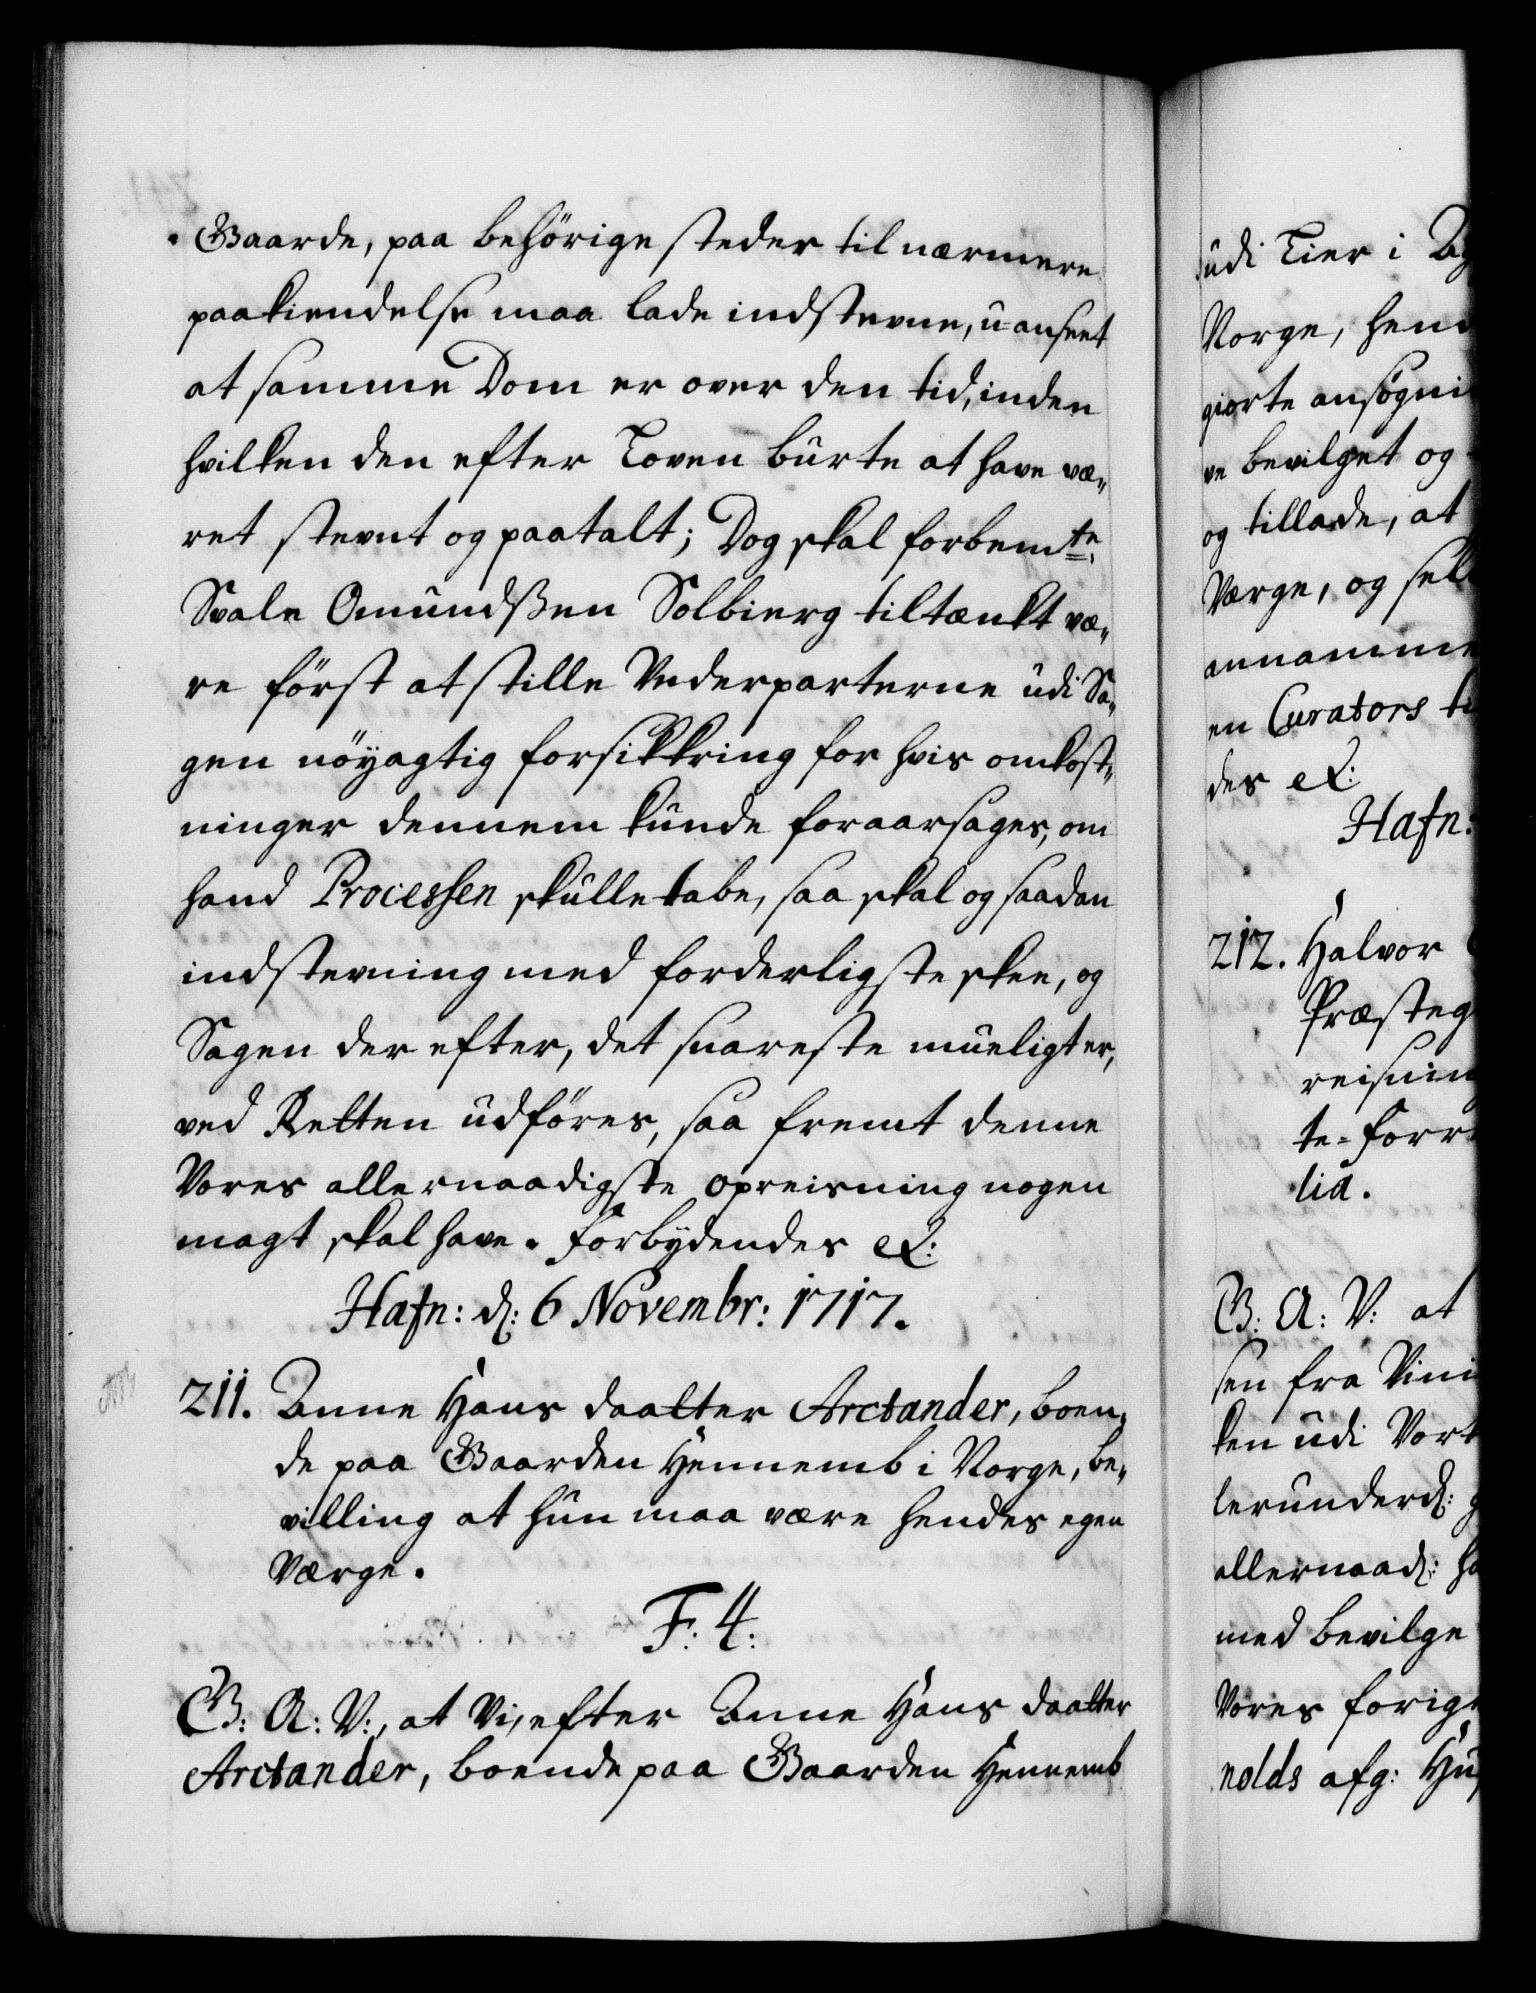 Gaarde, paa behörige steder til nærmere
paakiendelse maa lade indstevne, u-anseet
at samme Dom er over den tid, inden
hvilken den efter Loven burte at have væ„
ret stevnt og paatalt; Dog skal forbemte:
Svale Omundßen Solbierg tiltænkt væ„
re först at stille Vederparterne udi Sa„
gen nöyagtig forsikkring for hvis omkost„
ninger dennem kunde foraarsages, om
hand Processen skulle tabe, saa skal og saadan
indstevning med forderligste skee, og
Sagen der efter, det snareste mueligt er,
ved Retten udföres, saa fremt denne
Vores allernaadigste opreisning nogen
magt skal have. Forbydendes etc:
Hafn: d: 6 Novembr: 1717.
211. Anne Hans daatter Arctander, boen„
de paa Gaarden Hennemb i Norge, be„
villing at hun maa være hendes egen
Værge.
F: 4:
G: A: V:, at Vi, efter Anne Hans daatter
Arctander, boende paa Gaarden Hennemb
udi Lier i
Norge, hen
giorte ansøgni
ve bevilget og
og tillade, at
Værge, og sel
annamme
en Curators
des etc:
Hafn:
212. Halvor
Præsteg
reisnin
te-forr
lid.
G: A: V: at
sen fra Vini
ken udi Vort
lerunderd:
allernaad:
med bevilge
Vores forige
nolds afg: